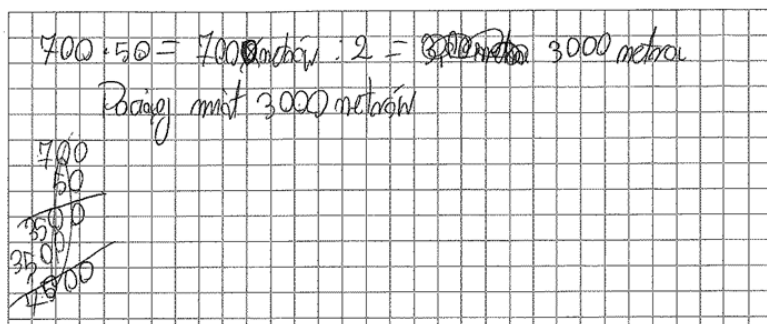 700 · 50 = 7000 metrów : 2 = 3000 metra
Pociąg miał 3000 metrów
700
50
3500
3500